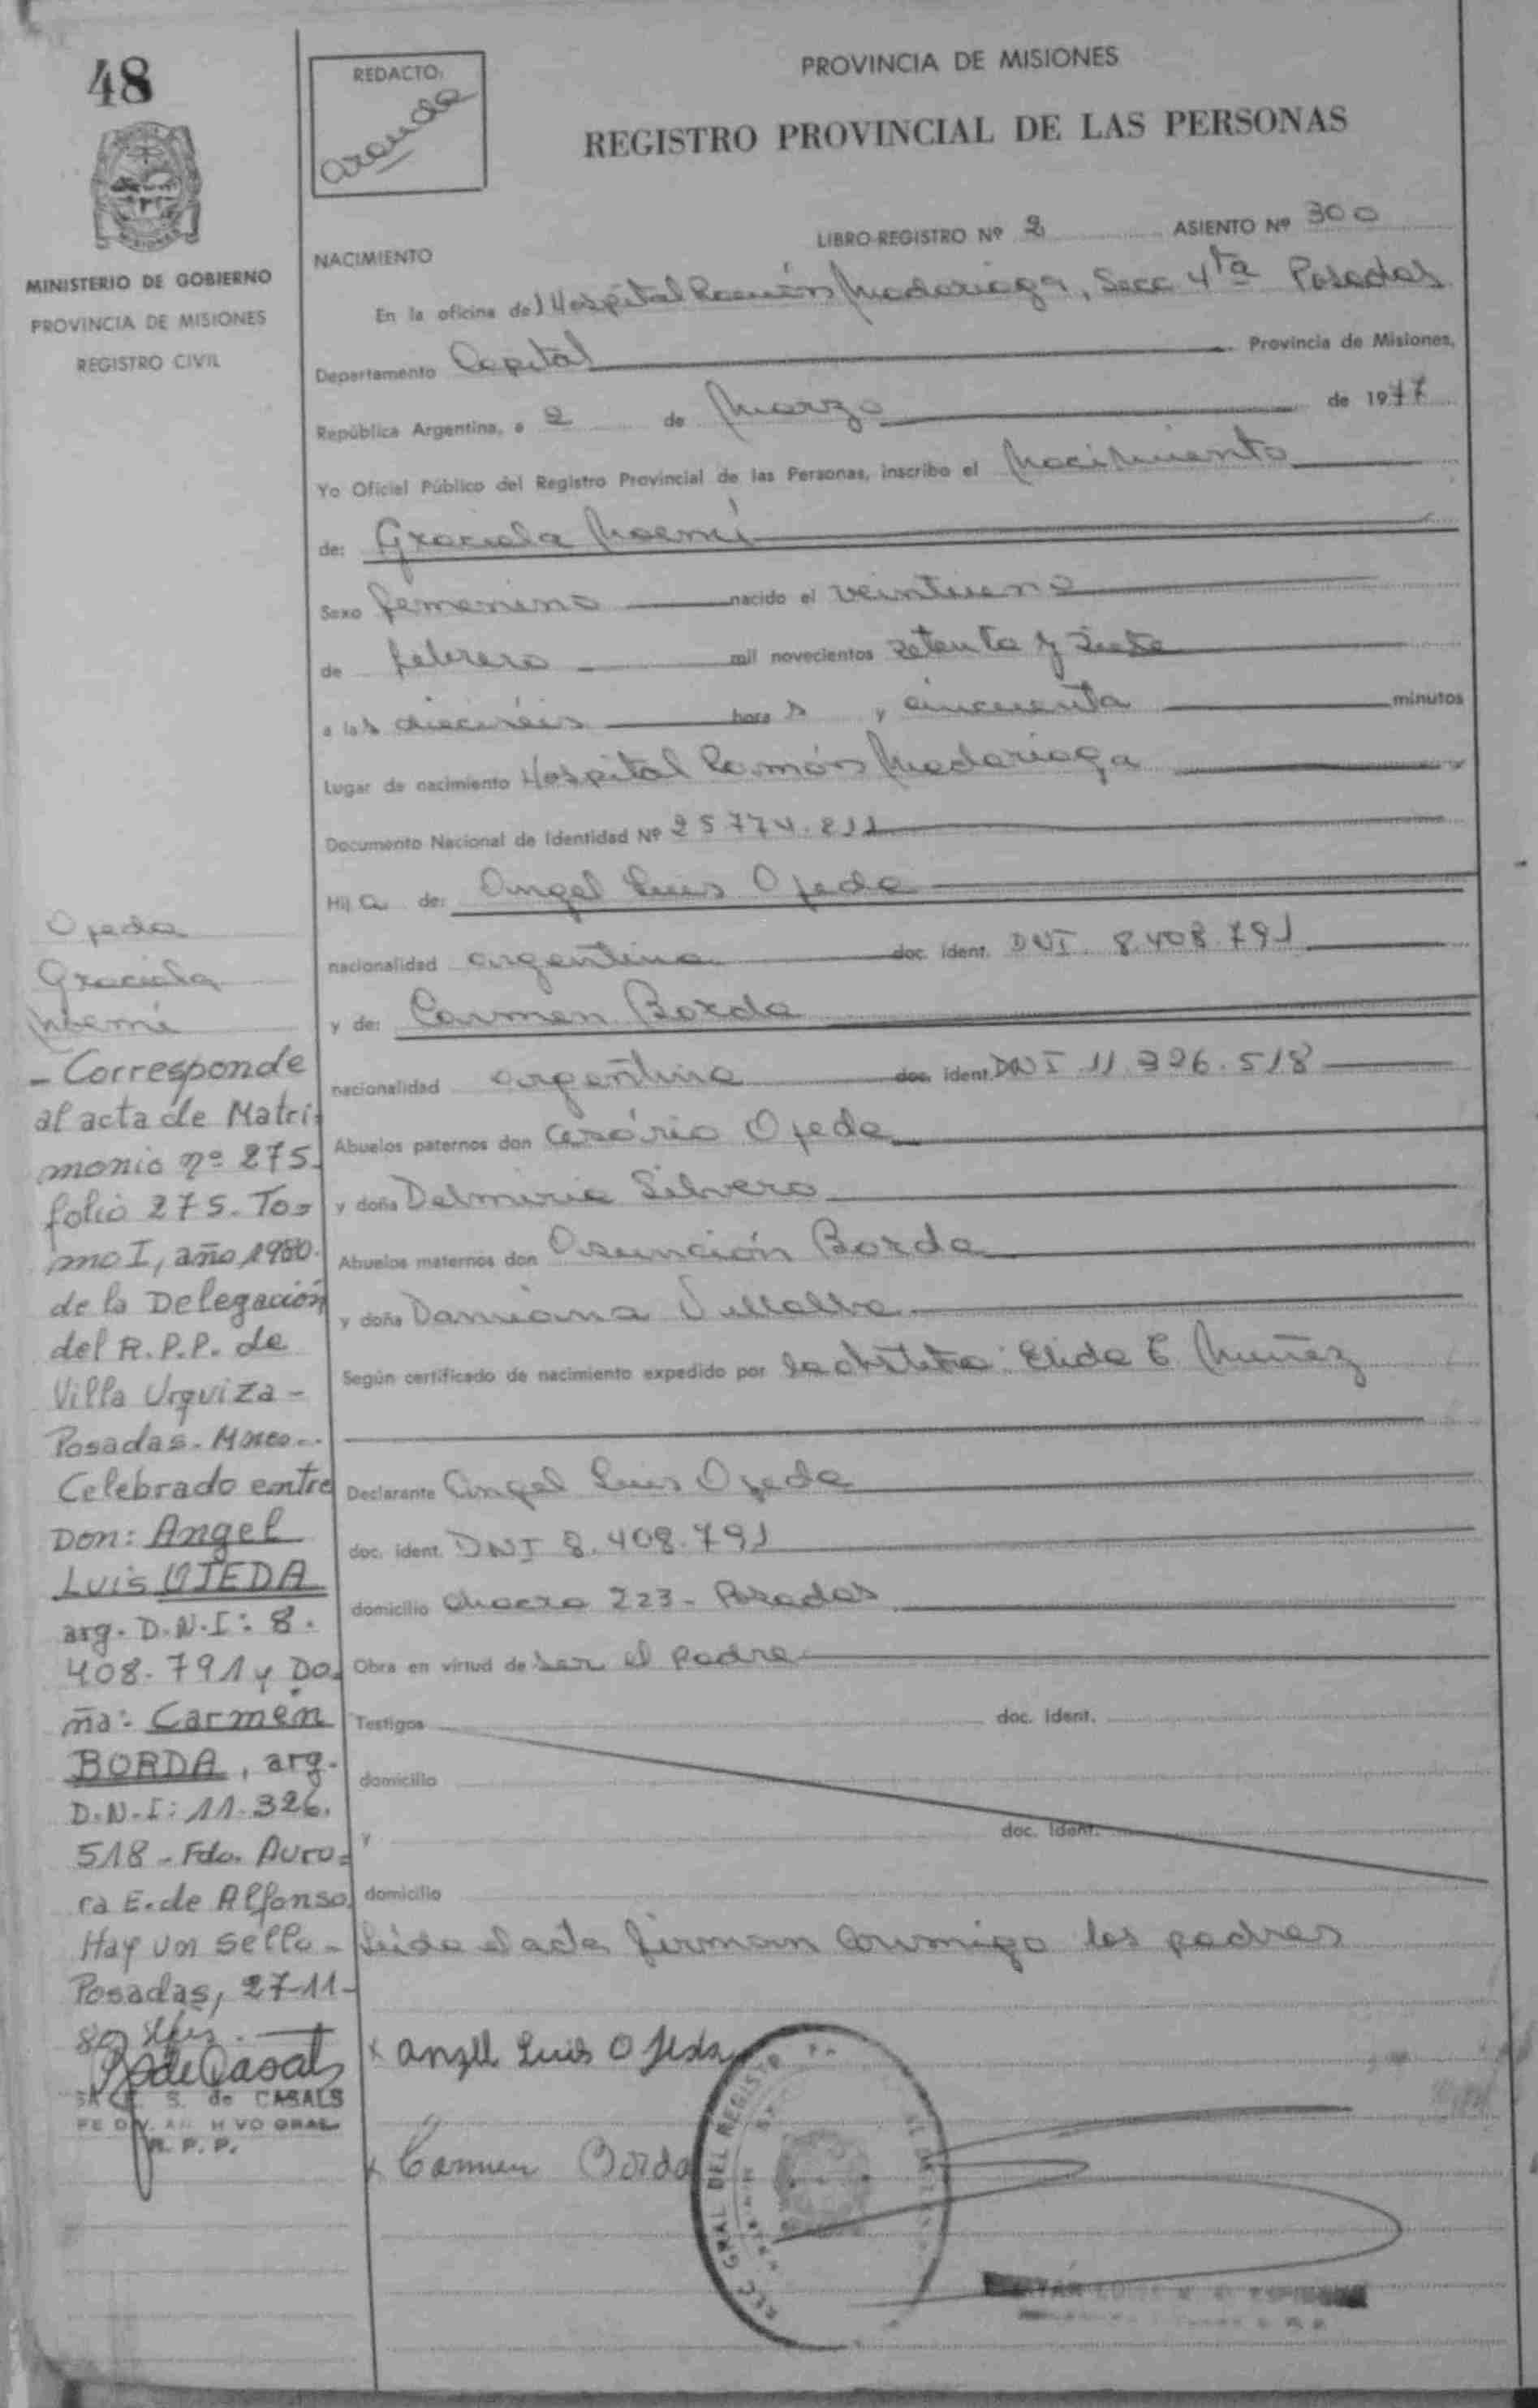 48
REDACTO:
Aranda
PROVINCIA DE MISIONES
REGISTRO PROVINCIAL DE LAS PERSONAS
MINISTERIO DE GOBIERNO
PROVINCIA DE MISIONES
REGISTRO CIVIL
LIBRO-REGISTRO Nº 2 ASIENTO Nº 300
NACIMIENTO
En la oficina del Hospital Ramón Madariaga, Secc 4ta Posadas
Departamento Capital Provincia de Misiones,
República Argentina, a 2 de Marzo de 1977
Yo Oficial Público del Registro Provincial de las Personas, inscribo el Nacimiento
de: Graciela Noemí
Sexo femenino nacido el veintiuno
de febrero mil novecientos setenta y siete
a las dieciséis hora s y cincuenta minutos
Lugar de nacimiento Hospital Ramón Madariaga
Documento Nacional de Identidad Nº 25.774.811
Hij a de: Angel Luis Ojeda
nacionalidad argentina doc. ident. DNI 8.408.791
y de: Carmen Borda
nacionalidad argentina doc. ident. DNI 11.326.518
Abuelos paternos don Cesáreo Ojeda
y doña Delmiria Silvero
Abuelos maternos don Asunción Borda
y doña Damiana Villalba
Según certificado de nacimiento expedido por Elida E Nuñez
Declarante Angel Luis Ojeda
doc. ident. DNI 8.408.791
domicilio Chacra 223 - Posadas
Obra en virtud de ser el padre
Testigos doc. ident.
domicilio
y doc. ident.
domicilio
Leída el acta firman conmigo los padres
x Angel Luis Ojeda
x Carmen Borda
Ojeda
Graciela
Noemí
- Corresponde
al acta de Matri=
monio nº 275.
folio 275. To=
mo I, año 1980.
de la Delegación
del R.P.P. de
Villa Urquiza -
Posadas - Mnes..
Celebrado entre
Don: Angel
Luis OJEDA
arg. D.N.I: 8.
408.791 y Do=
ña: Carmen
BORDA, arg.
D.N.I: 11.326.
518 - Fdo. Auro=
ra E. de Alfonso.
Hay un sello -
Posadas, 27-11-
80
de Casals
S. de CASALS
R. P. P.
GRAL DEL REGISTRO